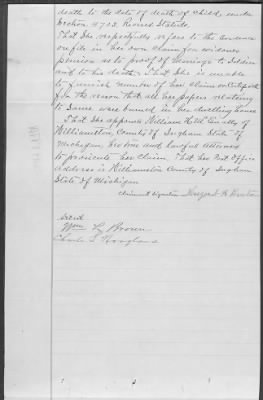 death to the date of death of child, under
Section 4703 Revised Statute.
That she respectfully refers to the evidence
on file in her own claim for widows
pension as to proof of marriage to soldier
and to his death. That she is unable
to furnish number of her claim or Certificate
for the reason that all her papers relating
to same were burned in her dwelling house
That she appoints William of
Williamston, County of Ingham State of
Michigan, her true and lawful Attorney
to prosecute her claim. That her Post Office
Address is Williamston County of Ingham
State of Michigan
Claimants signature Margaret
Attest
Wm L Brown
Charles L Hoagland